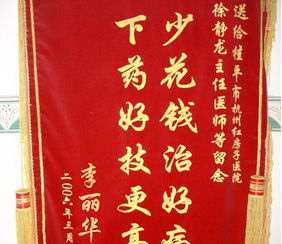 送给市杭州红房子医院
徐静龙主任医师等留念
少花钱治好病
下药好技更高
李丽华
二00六年三月